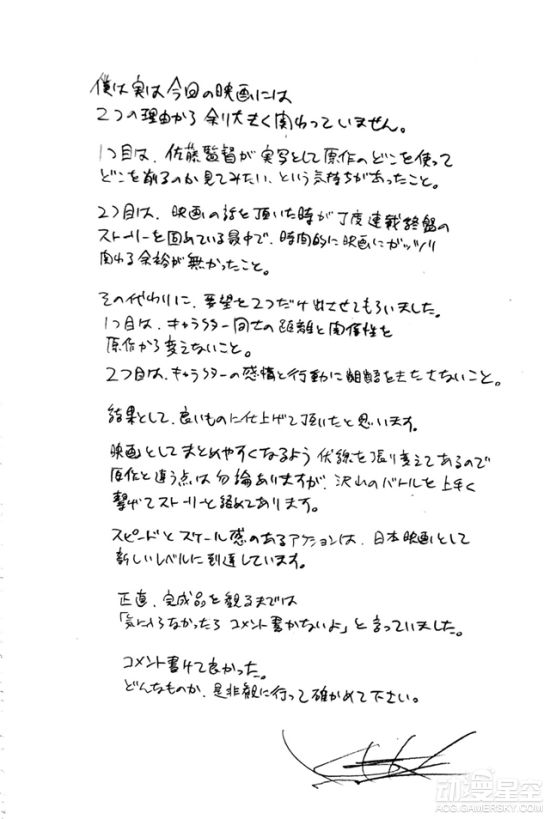 僕は実は今回の映画には
2つの理由から余り大きく関わっていません。
1つ目は、佐藤監督が実写として原作のどこを使って
どこを削るのか見てみたい、という気持ちがあったこと。
2つ目は、映画の話を頂いた時が丁度連載終盤の
ストーリーを固めている最中で、時間的に映画にガッツリ
関わる余裕が無かったこと。
その代わりに、要望を2つだけ出させてもらいました。
1つ目は、キャラクター同士の距離と関係性を
原作から変えないこと。
2つ目は、キャラクターの感情と行動に齟齬をきたさないこと。
結果として、良いものに仕上げて頂いたと思います。
映画としてまとめやすくなるよう伏線を張り変えてあるので
原作と違う点は勿論ありますが、沢山のバトルを上手く
繋げてストーリーと絡めてあります。
スピードとスケール感のあるアクションは、日本映画として
新しいレベルに到達しています。
正直、完成品を観るまでは
「気に入らなかったらコメント書かないよ」と言っていました。
コメント書けて良かった。
どんなものか、是非観に行って確かめて下さい。
动漫星空
ACG.GAMERSKY.COM